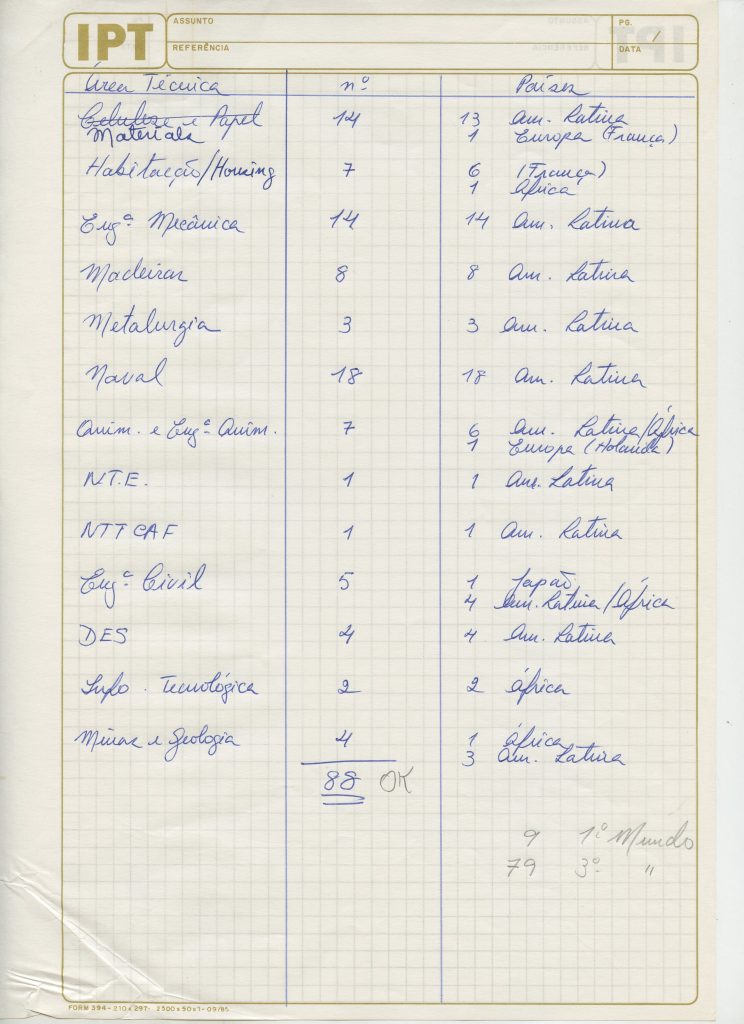 IPT
ASSUNTO
REFERÊNCIA
PG. 1
DATA
Área Técnica nº Países
Celulose e Papel 14 13 Am. Latina
Materials 1 Europa (França)
Habitação/Housing 7 6 (França)
1 África
Engª Mecânica 14 14 Am. Latina
Madeiras 8 8 Am. Latina
Metalurgia 3 3 Am. Latina
Naval 18 18 Am. Latina
Quim. e Engª Quim. 7 6 Am. Latina/África
1 Europa (Holanda)
N.T.E. 1 1 Am. Latina
NTTCAF 1 1 Am. Latina
Engª Civil 5 1 Japão
4 Am. Latina/África
DES 4 4 Am. Latina
Info. Tecnológica 2 2 África
Minas e Geologia 4 1 África
3 Am. Latina
88 OK
9 1º Mundo
79 3º "
FORM 394-210x297- 2500x50x1-09/85